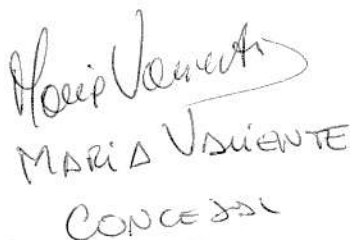 Maria Valiente
MARiA VALiENTE
CONCEJAL